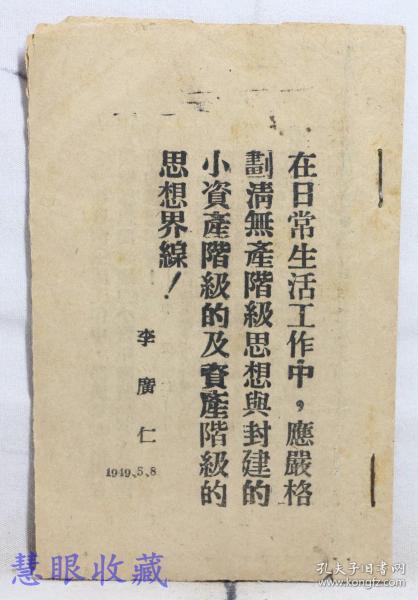 在日常生活工作中，應嚴格
劃清無產階級思想與封建的
小資產階級的及資產階級的
思想界線！
李廣仁
1949.5.8
慧眼收藏
孔夫子旧书网
www.kongfz.com